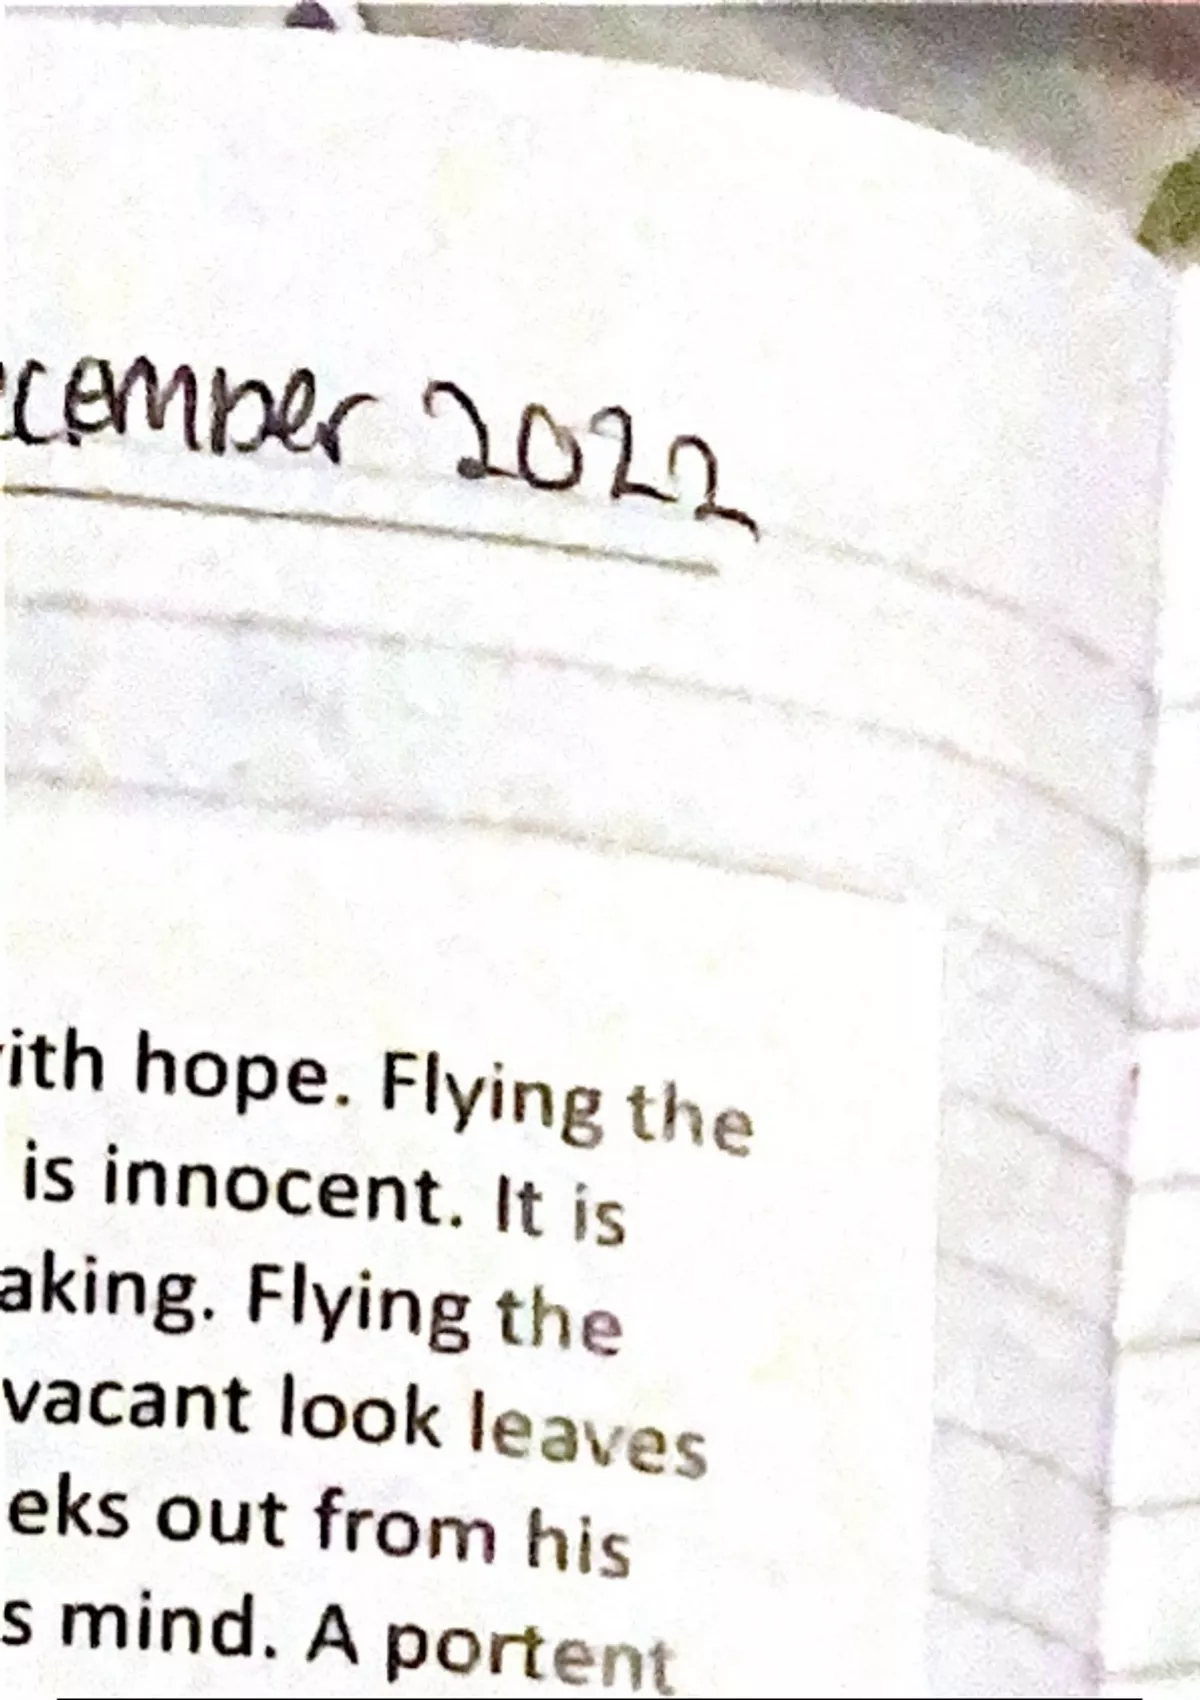 ecember 2022
ith hope. Flying the
is innocent. It is
aking. Flying the
vacant look leaves
eks out from his
s mind. A portent